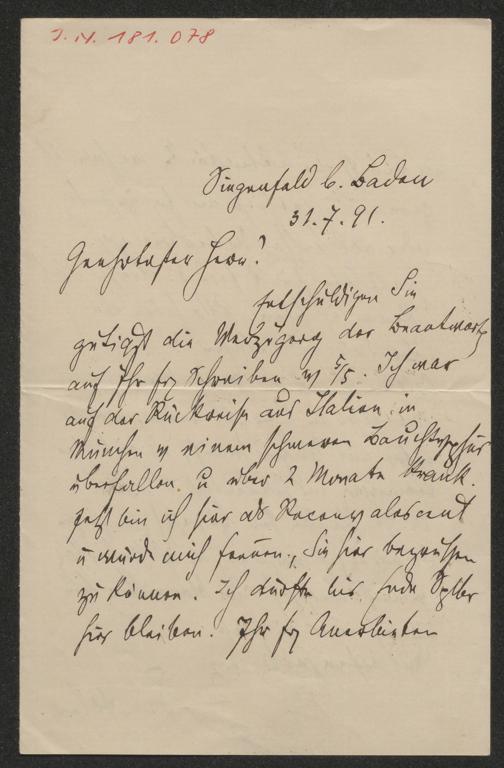 J. N. 181.078
Siegenfeld b. Baden
31.7.91.
Geehrtester Herr!
Entschuldigen Sie
gütigst die Verzögerung der Beantwortg
auf Ihr frz Schreiben v 5/5. Ich war
auf der Rückreise aus Italien in
München v einem schweren Bauchtyphus
überfallen u über 2 Monate krank.
Jetzt bin ich hier als Reconvalescent
u würde mich freuen, Sie hier begrüssen
zu können. Ich dürfte bis Ende Sptbr
hier bleiben. Ihr frz Anerbieten